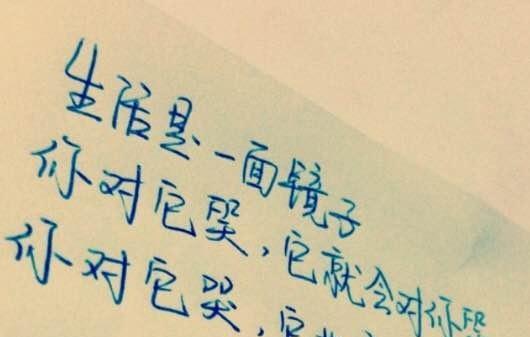 生活是一面镜子
你对它哭，它就会对你哭
你对它哭，它